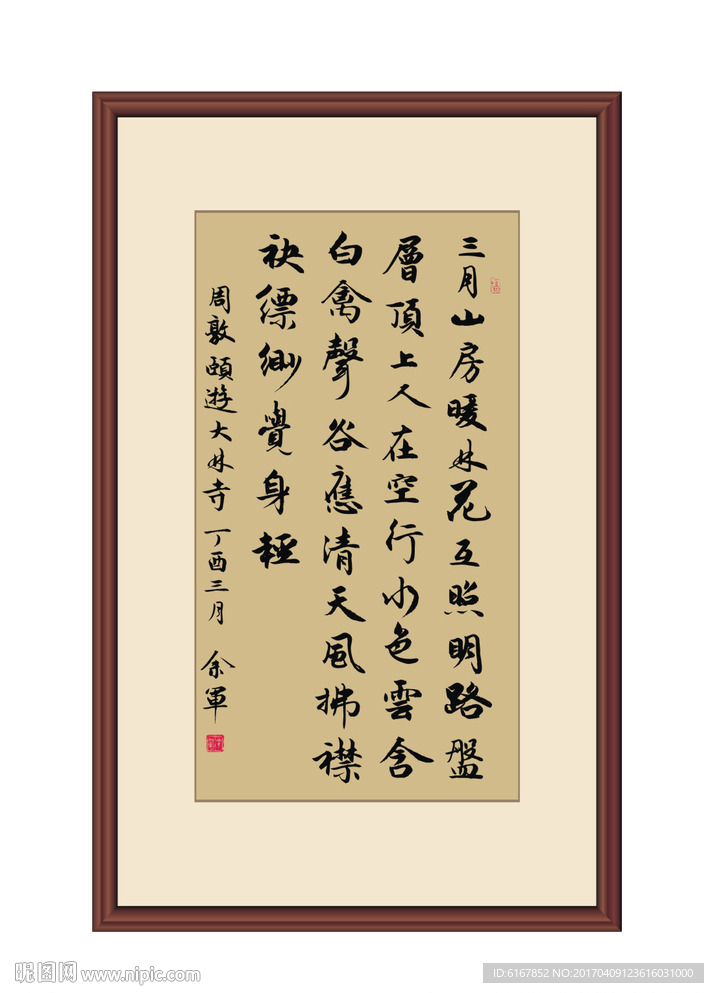 三月山房暖林花互照明路盤
層頂上人在空行水色雲含
白禽聲谷應清天風拂襟
袂縹緲覺身輕
周敦頤遊大林寺 丁酉三月 余軍
昵图网 www.nipic.com
ID:6167852 NO:20170409123616031000